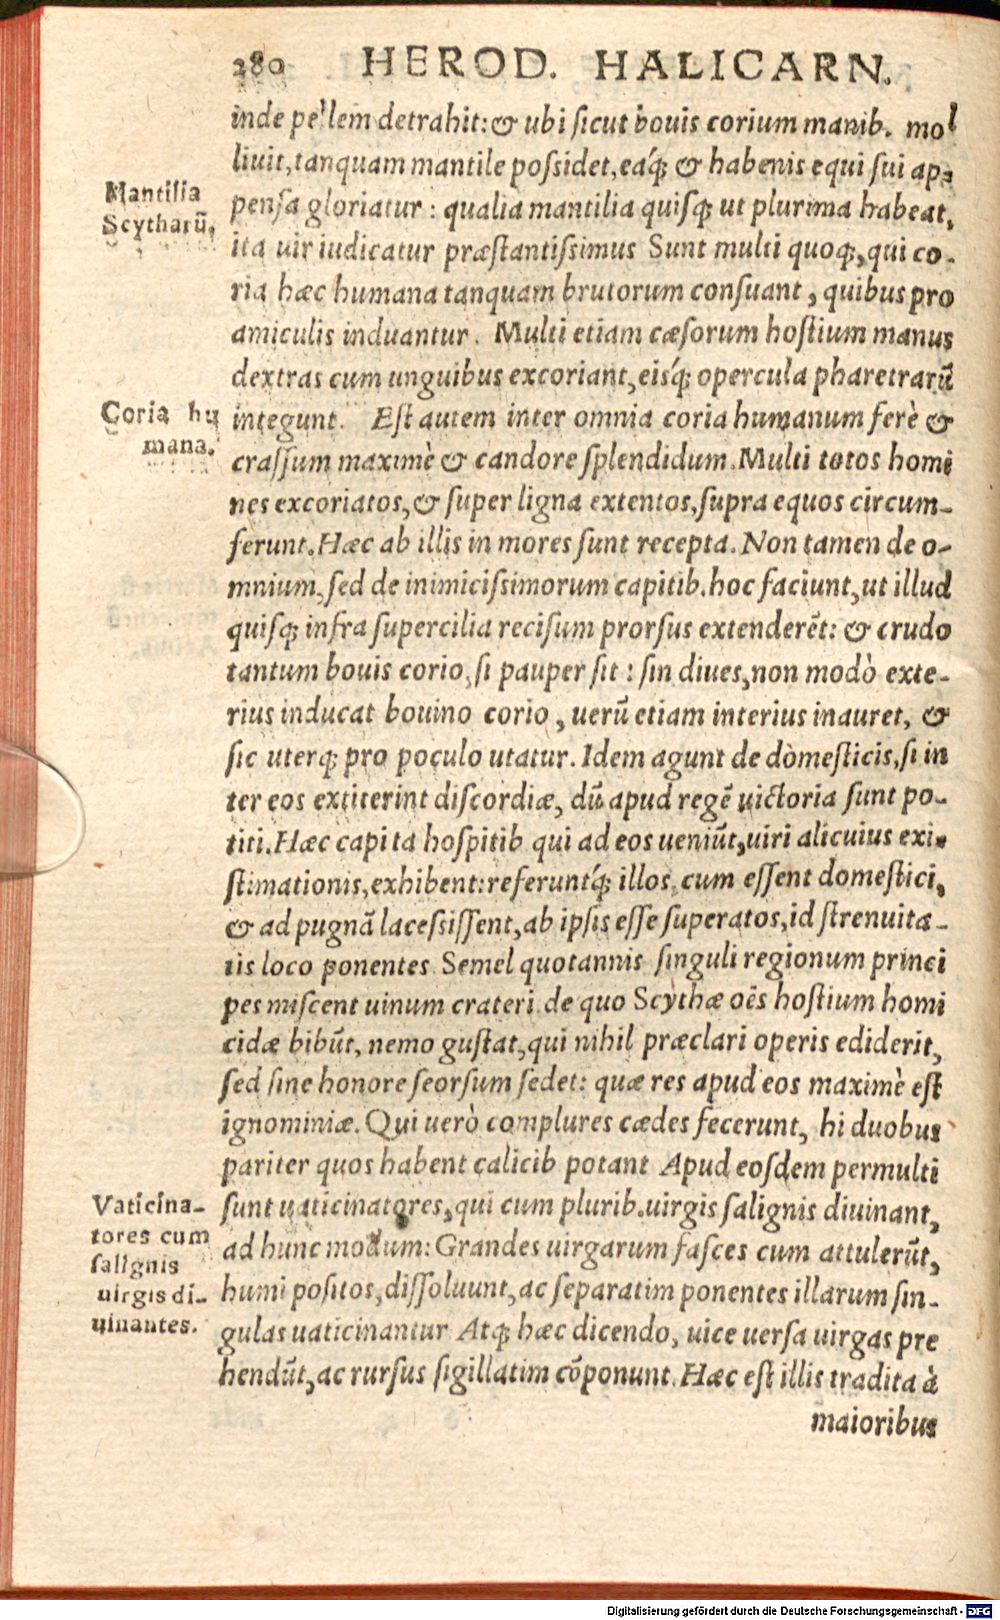 280 HEROD. HALICARN.
inde pellem detrahit: & ubi ſicut bouis corium manib. mol
liuit, tanquam mantile poſsidet, eaq́; & habenis equi ſui ap-
Mantilia
Scytharũ.
penſa gloriatur: qualia mantilia quiſq; ut plurima habeat,
ita uir iudicatur præſtantiſsimus Sunt multi quoq;, qui co-
ria hæc humana tanquam brutorum conſuant, quibus pro
amiculis induantur. Multi etiam cæſorum hoſtium manus
dextras cum unguibus excoriant, eiſq́; opercula pharetrarũ
Coria hu
mana.
integunt. Eſt autem inter omnia coria humanum ferè &
craſſum maximè & candore ſplendidum. Multi totos homi
nes excoriatos, & ſuper ligna extentos, ſupra equos circum-
ferunt. Hæc ab illis in mores ſunt recepta. Non tamen de o-
mnium, ſed de inimiciſsimorum capitib. hoc faciunt, ut illud
quiſq; infra ſupercilia reciſum prorſus extenderẽt: & crudo
tantum bouis corio, ſi pauper ſit: ſin diues, non modò exte-
rius inducat bouino corio, uerũ etiam interius inauret, &
ſic uterq; pro poculo utatur. Idem agunt de domeſticis, ſi in
ter eos extiterint diſcordiæ, dũ apud regẽ uictoria ſunt po-
titi. Hæc capita hoſpitib qui ad eos ueniũt, uiri alicuius exi-
ſtimationis, exhibent: referuntq́; illos, cum eſſent domeſtici,
& ad pugnã laceſsiſſent, ab ipſis eſſe ſuperatos, id ſtrenuita-
tis loco ponentes Semel quotannis ſinguli regionum princi
pes miſcent uinum crateri de quo Scythæ oẽs hoſtium homi
cidæ bibũt, nemo guſtat, qui nihil præclari operis ediderit,
ſed ſine honore ſeorſum ſedet: quæ res apud eos maximè eſt
ignominiæ. Qui uerò complures cædes fecerunt, hi duobus
pariter quos habent calicib potant Apud eoſdem permulti
Vaticina-
tores cum
ſalignis
uirgis di-
uinantes.
ſunt uaticinatores, qui cum plurib. uirgis ſalignis diuinant,
ad hunc modum: Grandes uirgarum faſces cum attulerũt,
humi poſitos, diſſoluunt, ac ſeparatim ponentes illarum ſin-
gulas uaticinantur Atq; hæc dicendo, uice uerſa uirgas pre
hendũt, ac rurſus ſigillatim cõponunt. Hæc eſt illis tradita à
maioribus
Digitalisierung gefördert durch die Deutsche Forschungsgemeinschaft - DFG